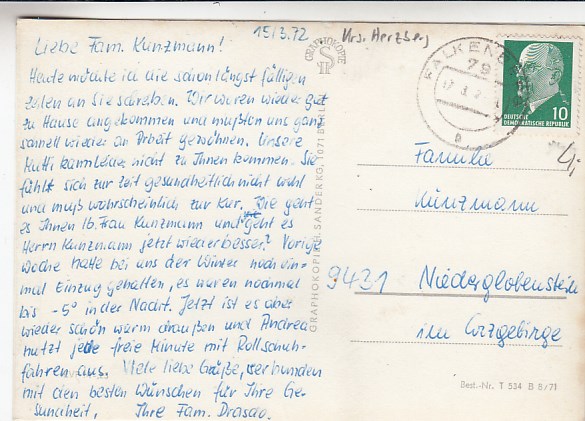 15.3.72
Krs. Herzberg
Liebe Fam. Kunzmann!
Heute möchte ich die schon längst fälligen
Zeilen an Sie schreiben. Wir waren wieder gut
zu Hause angekommen und mußten uns ganz
schnell wieder an Arbeit gewöhnen. Unsere
Mutti kann leider nicht zu Ihnen kommen. Sie
fühlt sich zur Zeit gesundheitlich nicht wohl
und muß wahrscheinlich zur Kur. Wie geht
es Ihnen lb. Frau Kunzmann und geht es
Herrn Kunzmann jetzt wieder besser? Vorige
Woche hatte bei uns der Winter noch ein-
mal Einzug gehalten, es waren nochmal
bis -5° in der Nacht. Jetzt ist es aber
wieder schön warm draußen und Andrea
nutzt jede freie Minute mit Rollschuh-
fahren aus. Viele liebe Grüße, verbunden
mit den besten Wünschen für Ihre Ge-
sundheit, Ihre Fam. Drasdo.
GRAPHOKOPIE
GRAPHOKOPIE H. SANDER KG, 1071 BERLIN
FALKENBERG
79
17.3.72
b
DEUTSCHE
DEMOKRATISCHE REPUBLIK
10
4,-
Familie
Kunzmann
9431 Niederglobenstein
im Erzgebirge
Best.-Nr. T 534 B 8/71